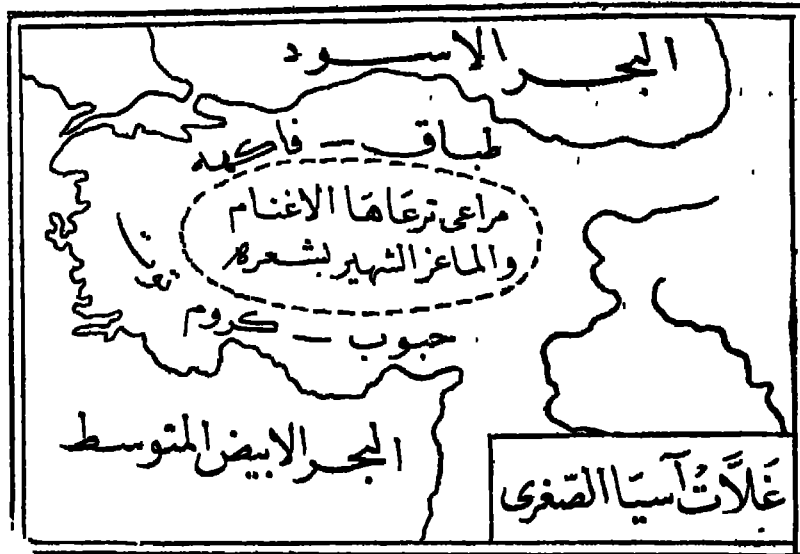 البحر الاسود
طباق - فاكهه
مراعى ترعاها الاغنام
والماعز الشهير بشعره
حبوب - كروم
البحر الابيض المتوسط
غَلاَّتُ آسيَا الصّغرى